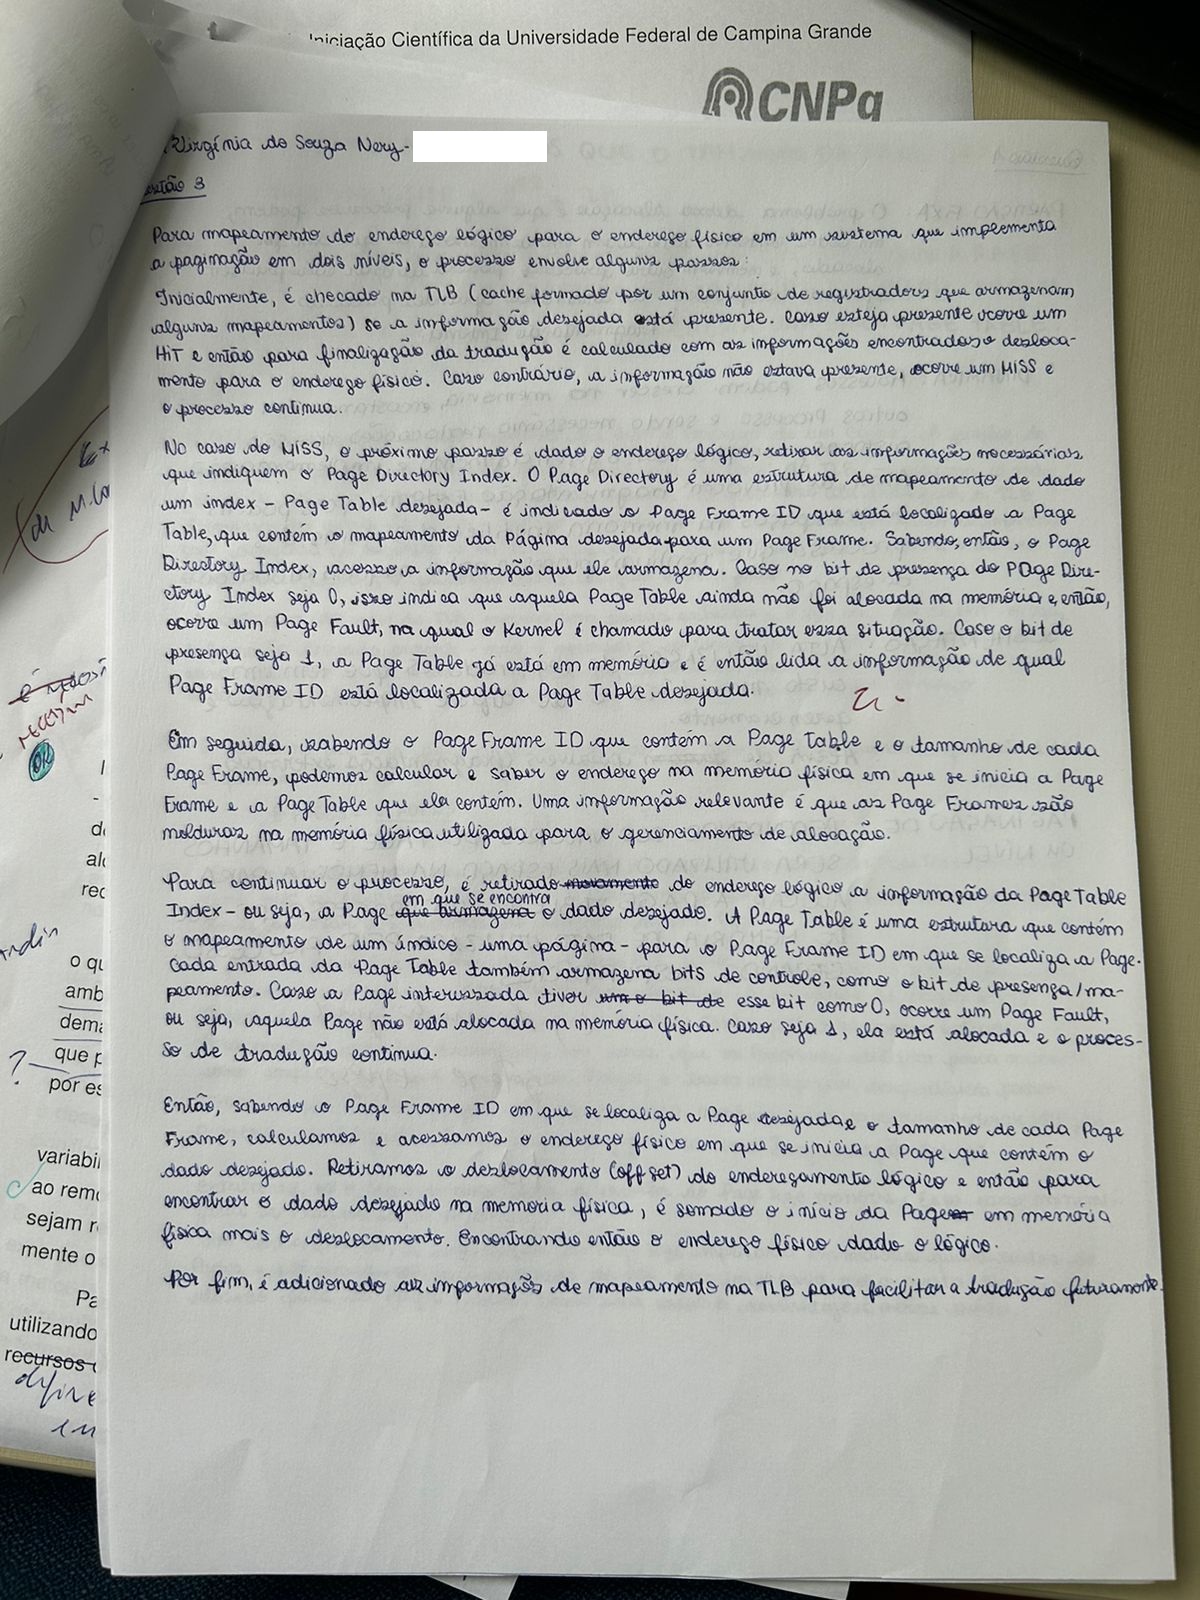 Iniciação Científica da Universidade Federal de Campina Grande
CNPq
Virgínia de Souza Nery-
Questão 3
Para mapeamento do endereço lógico para o endereço físico em um sistema que implementa
a paginação em dois níveis, o processo envolve alguns passos:
Inicialmente, é checado na TLB (cache formado por um conjunto de registradores que armazenam
alguns mapeamentos) se a informação desejada está presente. Caso esteja presente ocorre um
HIT e então para finalização da tradução é calculado com as informações encontradas o desloca-
mento para o endereço físico. Caso contrário, a informação não estava presente, ocorre um MISS e
o processo continua.
No caso do MISS, o próximo passo é dado o endereço lógico, retirar as informações necessárias
que indiquem o Page Directory Index. O Page Directory é uma estrutura de mapeamento de dado
um index - Page Table desejada - é indicado o Page Frame ID que está localizado a Page
Table, que contém o mapeamento da Página desejada para um Page Frame. Sabendo, então, o Page
Directory Index, acesso a informação que ele armazena. Caso no bit de presença do Page Dire-
ctory Index seja 0, isso indica que aquela Page Table ainda não foi alocada na memória e, então,
ocorre um Page Fault, na qual o Kernel é chamado para tratar essa situação. Caso o bit de
presença seja 1, a Page Table já está em memória e é então lida a informação de qual
Page Frame ID está localizada a Page Table desejada.
Em seguida, sabendo o Page Frame ID que contém a Page Table e o tamanho de cada
Page Frame, podemos calcular e saber o endereço na memória física em que se inicia a Page
Frame e a Page Table que ela contém. Uma informação relevante é que as Page Frames são
molduras na memória física utilizada para o gerenciamento de alocação.
Para continuar o processo, é retirado novamente do endereço lógico a informação da Page Table
Index - ou seja, a Page que armazena em que se encontra o dado desejado. A Page Table é uma estrutura que contém
o mapeamento de um índice - uma página - para o Page Frame ID em que se localiza a Page.
Cada entrada da Page Table também armazena bits de controle, como o bit de presença/ma-
peamento. Caso a Page interessada tiver um o bit de esse bit como 0, ocorre um Page Fault,
ou seja, aquela Page não está alocada na memória física. Caso seja 1, ela está alocada e o proces-
so de tradução continua.
Então, sabendo o Page Frame ID em que se localiza a Page desejada e o tamanho de cada Page
Frame, calculamos e acessamos o endereço físico em que se inicia a Page que contém o
dado desejado. Retiramos o deslocamento (offset) do endereçamento lógico e então para
encontrar o dado desejado na memoria física, é somado o início da Page em memória
física mais o deslocamento. Encontrando então o endereço físico dado o lógico.
Por fim, é adicionado as informações de mapeamento na TLB para facilitar a tradução futuramente.
OK
o qu
amb
dema
que p
?
por es
variabil
ao remo
sejam r
mente o
Pa
utilizando
recursos